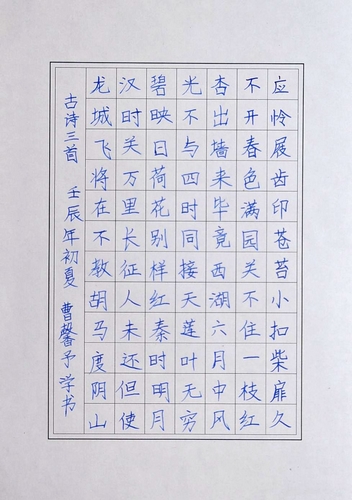 应怜屐齿印苍苔小扣柴扉久
不开春色满园关不住一枝红
杏出墙来毕竟西湖六月中风
光不与四时同接天莲叶无穷
碧映日荷花别样红秦时明月
汉时关万里长征人未还但使
龙城飞将在不教胡马度阴山
古诗三首 壬辰年初夏 曹馨予学书